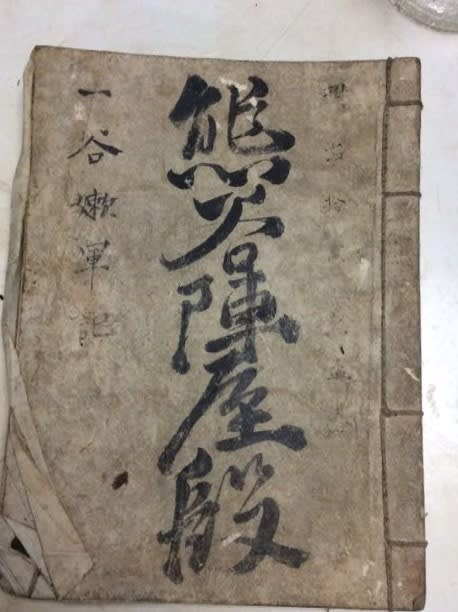 熊谷陣屋段
一谷嫩軍記